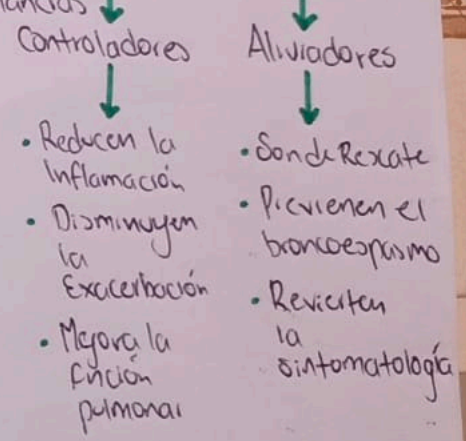 Controladores
• Reducen la
Inflamación
• Disminuyen
la
Exacerbación
• Mejora la
función
pulmonar
Aliviadores
• Son de Rexcate
• Previenen el
broncoespasmo
• Revierten
la
sintomatología